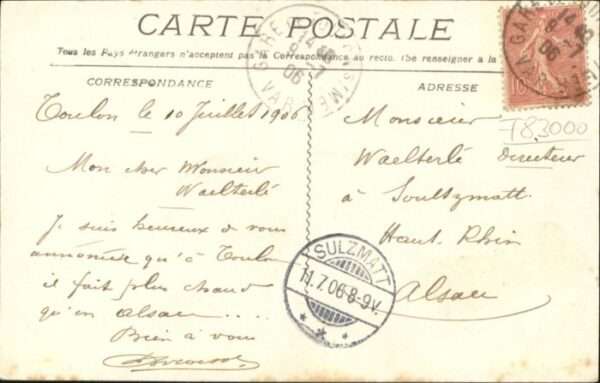 CARTE POSTALE
Tous les Pays étrangers n'acceptent pas la Correspondance au recto. (Se renseigner à la
CORRESPONDANCE
Toulon le 10 Juillet 1906
Mon cher Monsieur
Waelterlé
Je suis heureux de vous
annoncer qu'à Toulon
il fait plus chaud
qu'en Alsace ....
Bien à vous
ADRESSE
Monsieur
Waelterlé Directeur
à Soultzmatt
Haut Rhin
Alsace
T83000
SULZMATT
11.7.06.8-9V.
GARE
VAR
10